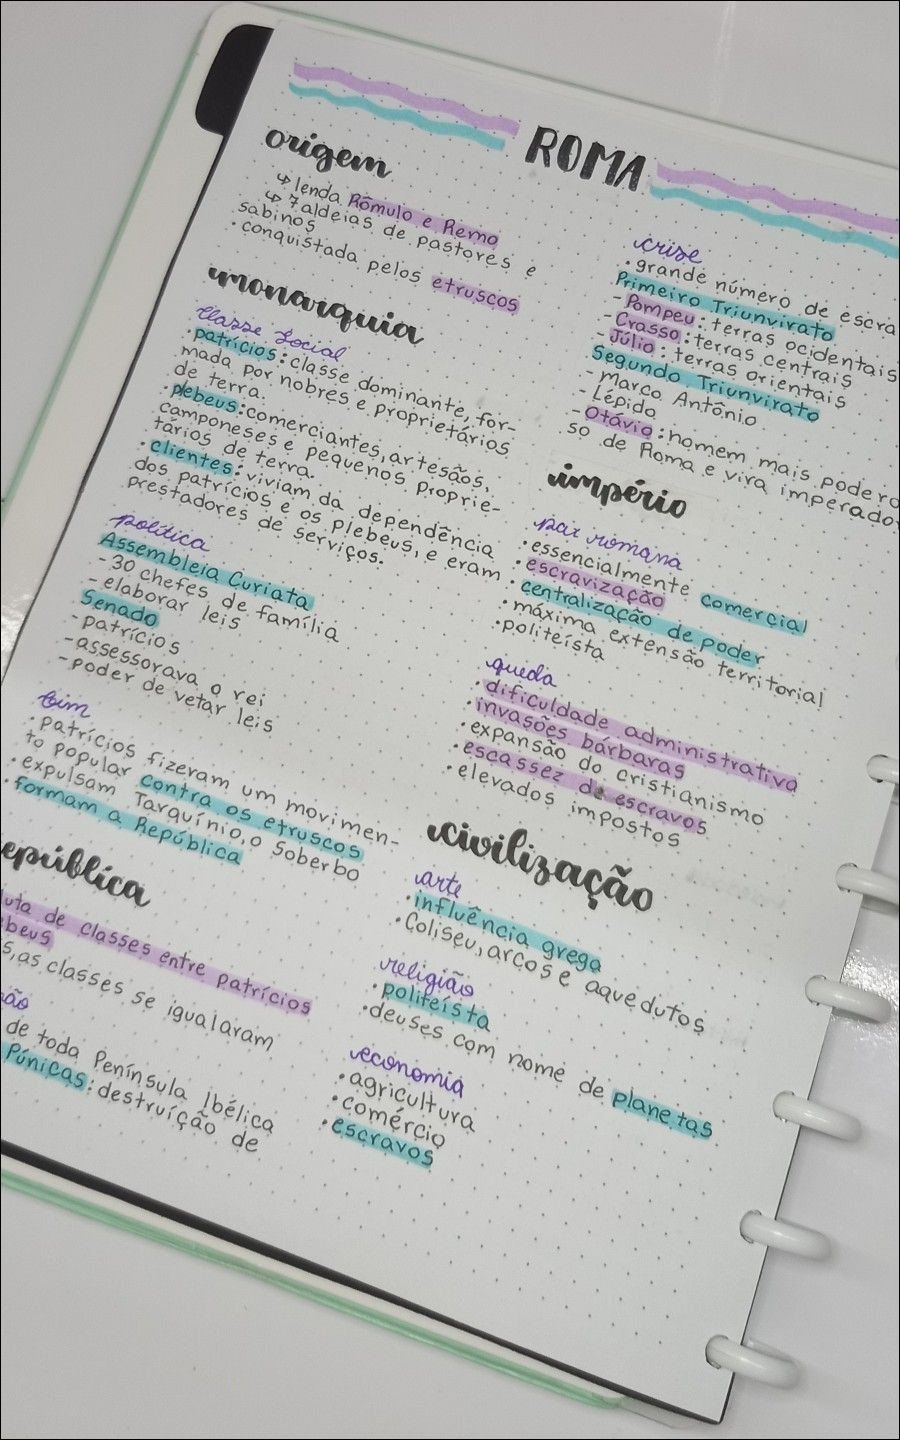 ROMA
origem
↳ lenda Rômulo e Remo
↳ 7 aldeias de pastores e
sabinos
• conquistada pelos etruscos
monarquia
classe social
• patrícios: classe dominante, for-
mada por nobres e proprietários
de terra.
• plebeus: comerciantes, artesãos,
camponeses e pequenos proprie-
tários de terra.
• clientes: viviam da dependência
dos patrícios e os plebeus, e eram
prestadores de serviços.
política
Assembleia Curiata
- 30 chefes de família
- elaborar leis
Senado
- patrícios
- assessorava o rei
- poder de vetar leis
fim
• patrícios fizeram um movimen-
to popular contra os etruscos
• expulsam Tarquínio, o Soberbo
• formam a República
epública
uta de classes entre patrícios
beus
s, as classes se igualaram
ão
de toda Península Ibélica
Púnicas: destruíção de
crise
• grande número de escra
Primeiro Triunvirato
- Pompeu: terras ocidentais
- Crasso: terras centrais
- Júlio: terras orientais
Segundo Triunvirato
- Marco Antônio
- Lépido
- Otávio: homem mais podero
so de Roma e vira imperador
império
pax romana
• essencialmente comercial
• escravização
• centralização de poder
• máxima extensão territorial
• politeísta
queda
• dificuldade administrativa
• invasões bárbaras
• expansão do cristianismo
• escassez de escravos
• elevados impostos
civilização
arte
• influência grega
• Coliseu, arcos e aquedutos
religião
• politeísta
• deuses com nome de planetas
economia
• agricultura
• comércio
• escravos